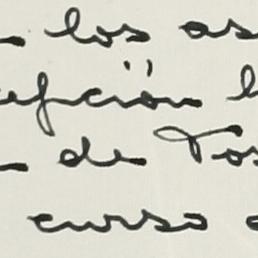 los as
epción
de Tos
curso